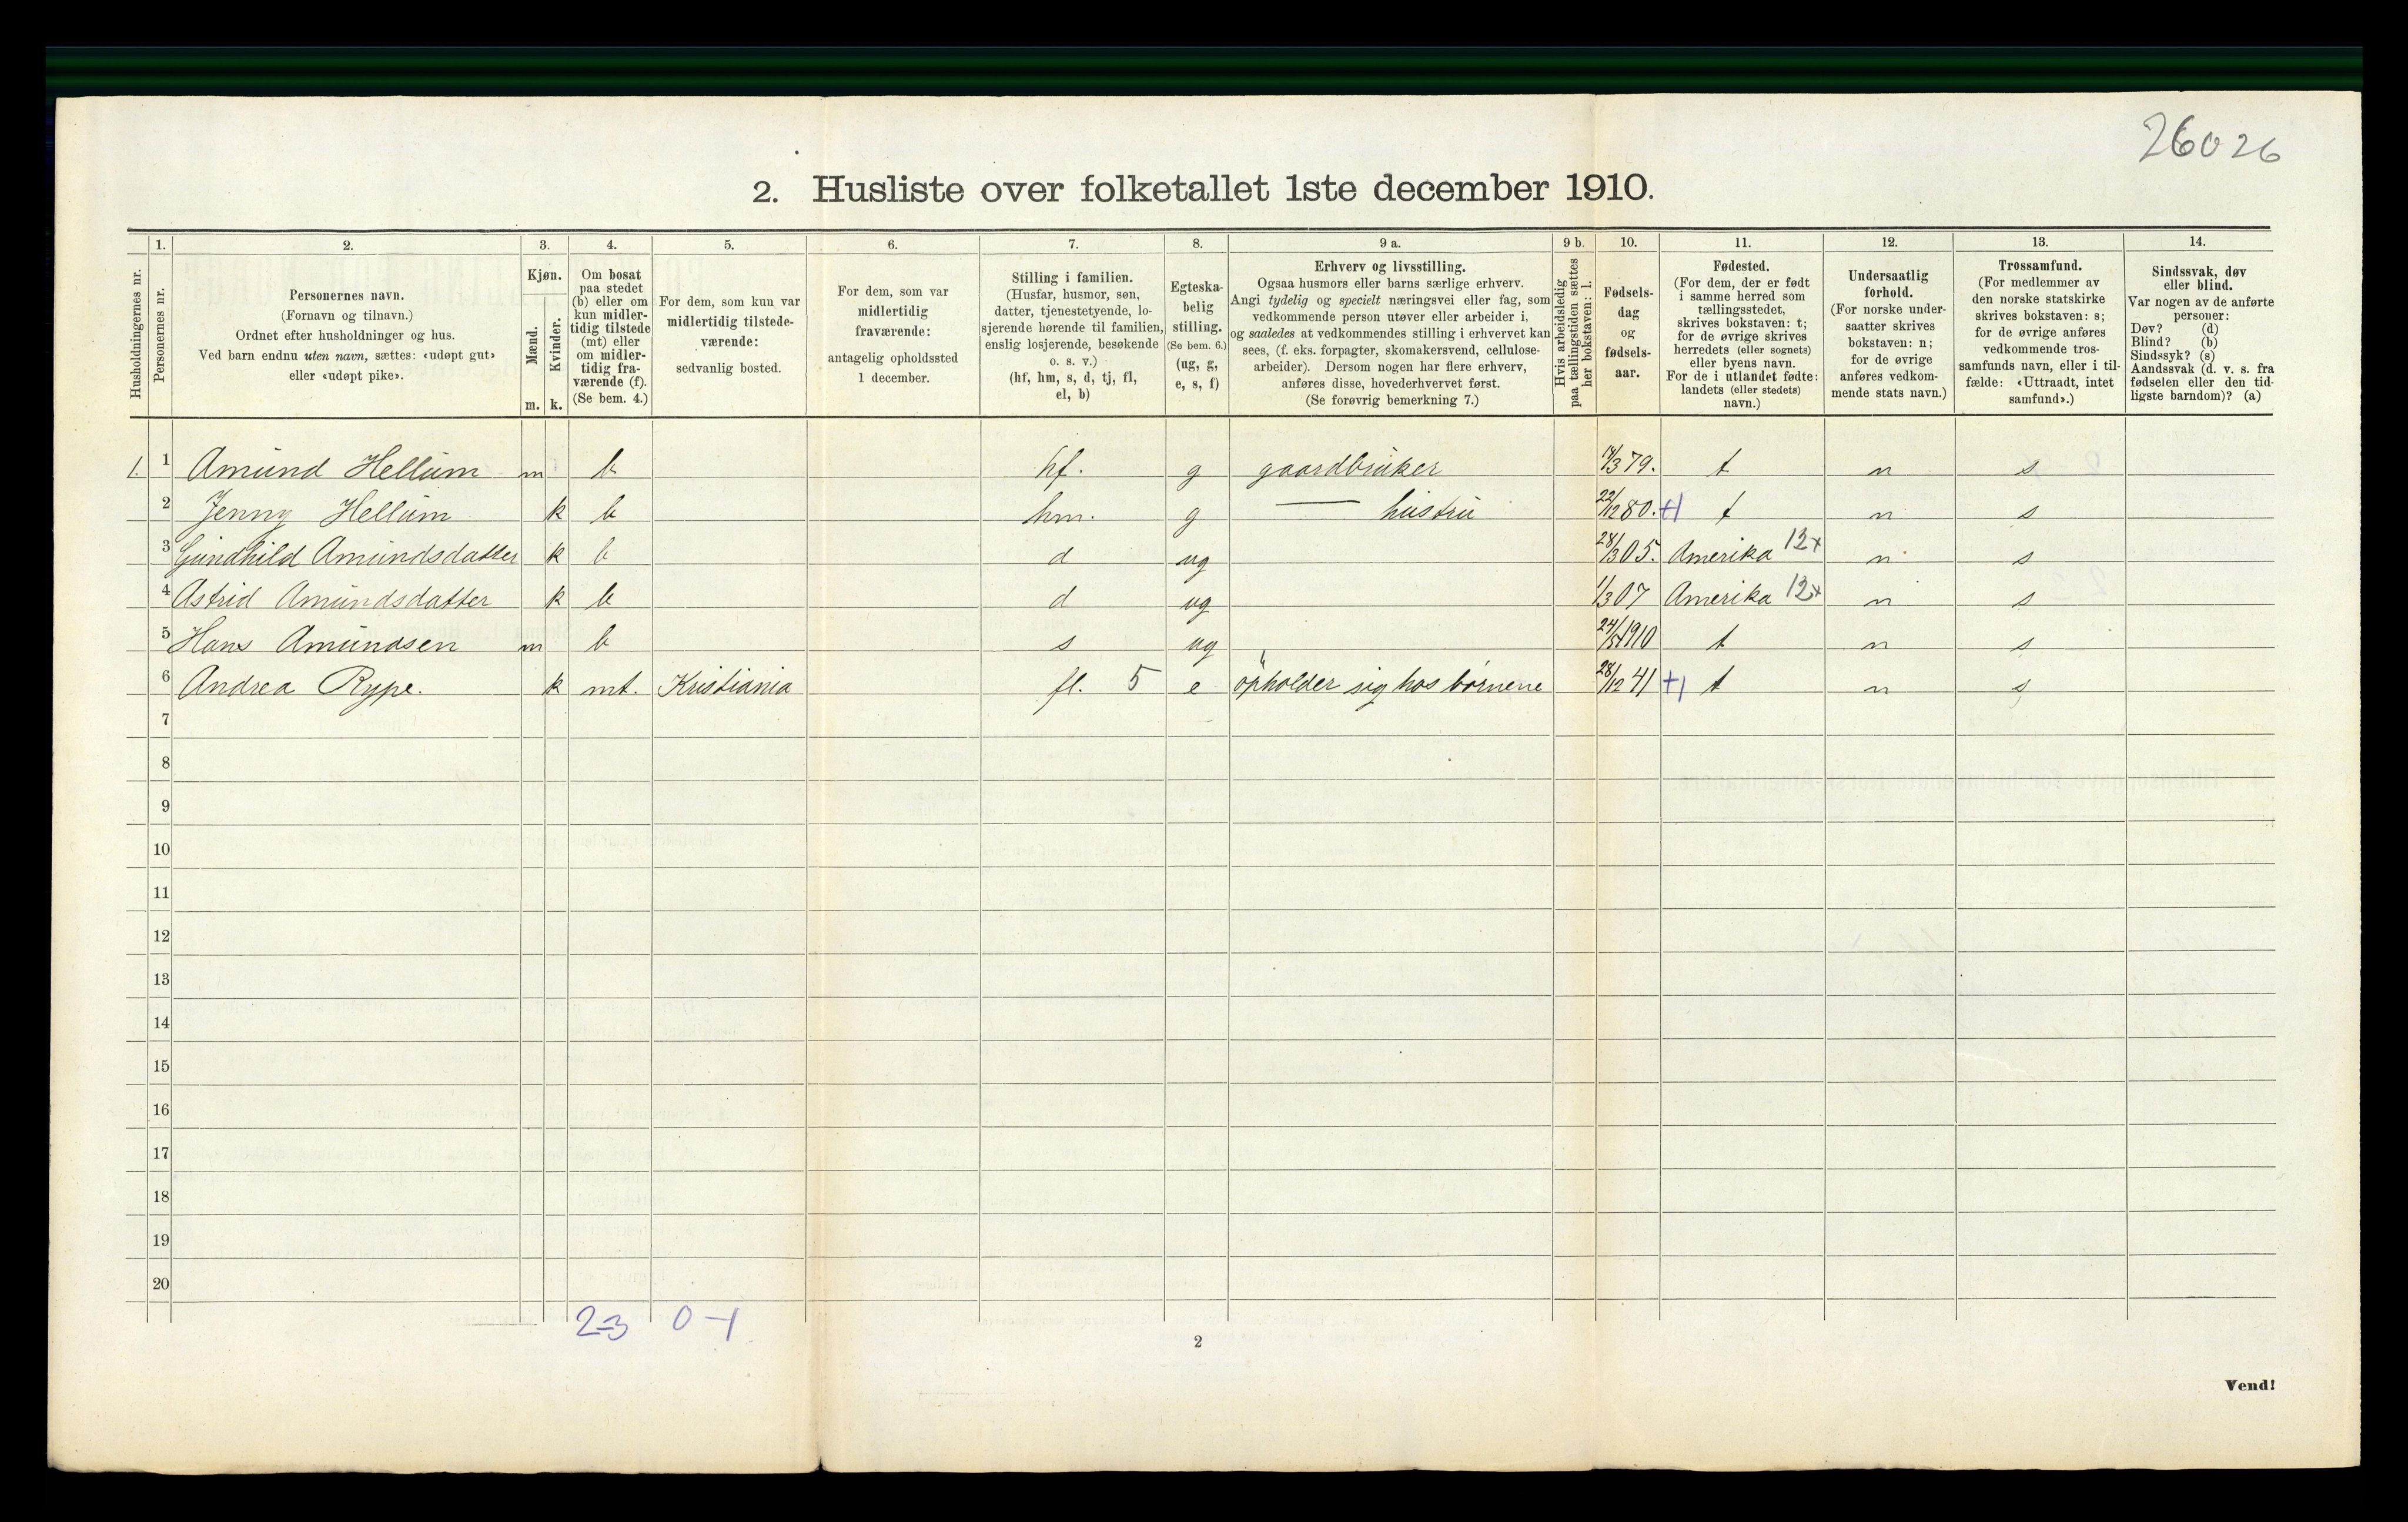 26026
2. Husliste over folketallet 1ste december 1910.
Husholdningernes nr.
1. Personernes nr.
2. Personernes navn.
(Fornavn og tilnavn.)
Ordnet efter husholdninger og hus.
Ved barn endnu uten navn, sættes: «udøpt gut»
eller «udøpt pike».
3. Kjøn.
Mænd. m.
Kvinder. k.
4. Om bosat
paa stedet
(b) eller om
kun midler-
tidig tilstede
(mt) eller
om midler-
tidig fra-
værende (f).
(Se bem. 4.)
5. For dem, som kun var
midlertidig tilstede-
værende:
sedvanlig bosted.
6. For dem, som var
midlertidig
fraværende:
antagelig opholdssted
1 december.
7. Stilling i familien.
(Husfar, husmor, søn,
datter, tjenestetyende, lo-
sjerende hørende til familien,
enslig losjerende, besøkende
o. s. v.)
(hf, hm, s, d, tj, fl,
el, b)
8. Egteska-
belig
stilling.
(Se bem. 6.)
(ug, g,
e, s, f)
9 a. Erhverv og livsstilling.
Ogsaa husmors eller barns særlige erhverv.
Angi tydelig og specielt næringsvei eller fag, som
vedkommende person utøver eller arbeider i,
og saaledes at vedkommendes stilling i erhvervet kan
sees, (f. eks. forpagter, skomakersvend, cellulose-
arbeider). Dersom nogen har flere erhverv,
anføres disse, hovederhvervet først.
(Se forøvrig bemerkning 7.)
9 b. Hvis arbeidsledig
paa tællingstiden sættes
her bokstaven: l.
10. Fødsels-
dag
og
fødsels-
aar.
11. Fødested.
(For dem, der er født
i samme herred som
tællingsstedet,
skrives bokstaven: t;
for de øvrige skrives
herredets (eller sognets)
eller byens navn.
For de i utlandet fødte:
landets (eller stedets)
navn.)
12. Undersaatlig
forhold.
(For norske under-
saatter skrives
bokstaven: n;
for de øvrige
anføres vedkom-
mende stats navn.)
13. Trossamfund.
(For medlemmer av
den norske statskirke
skrives bokstaven: s;
for de øvrige anføres
vedkommende tros-
samfunds navn, eller i til-
fælde: «Uttraadt, intet
samfund».)
14. Sindssvak, døv
eller blind.
Var nogen av de anførte
personer:
Døv? (d)
Blind? (b)
Sindssyk? (s)
Aandssvak (d. v. s. fra
fødselen eller den tid-
ligste barndom)? (a)
1. 1 Amund Hellum m b hf. g gaardbruker 14/3 79. t n s
2 Jenny Hellum k b hm. g — hustru 22/12 80. +1 t n s
3 Gundhild Amundsdatter k b d ug 28/3 05. Amerika 12+ n s
4 Astrid Amundsdatter k b d ug 1/3 07 Amerika 12+ n s
5 Hans Amundsen m b s ug 1910 t n s
6 Andrea Rype. k mt. Kristiania fl. 5 e opholder sig hos børnene 28/12 41 +1 t n s
7
8
9
10
11
12
13
14
15
16
17
18
19
20
2-3 0-1
2
Vend!